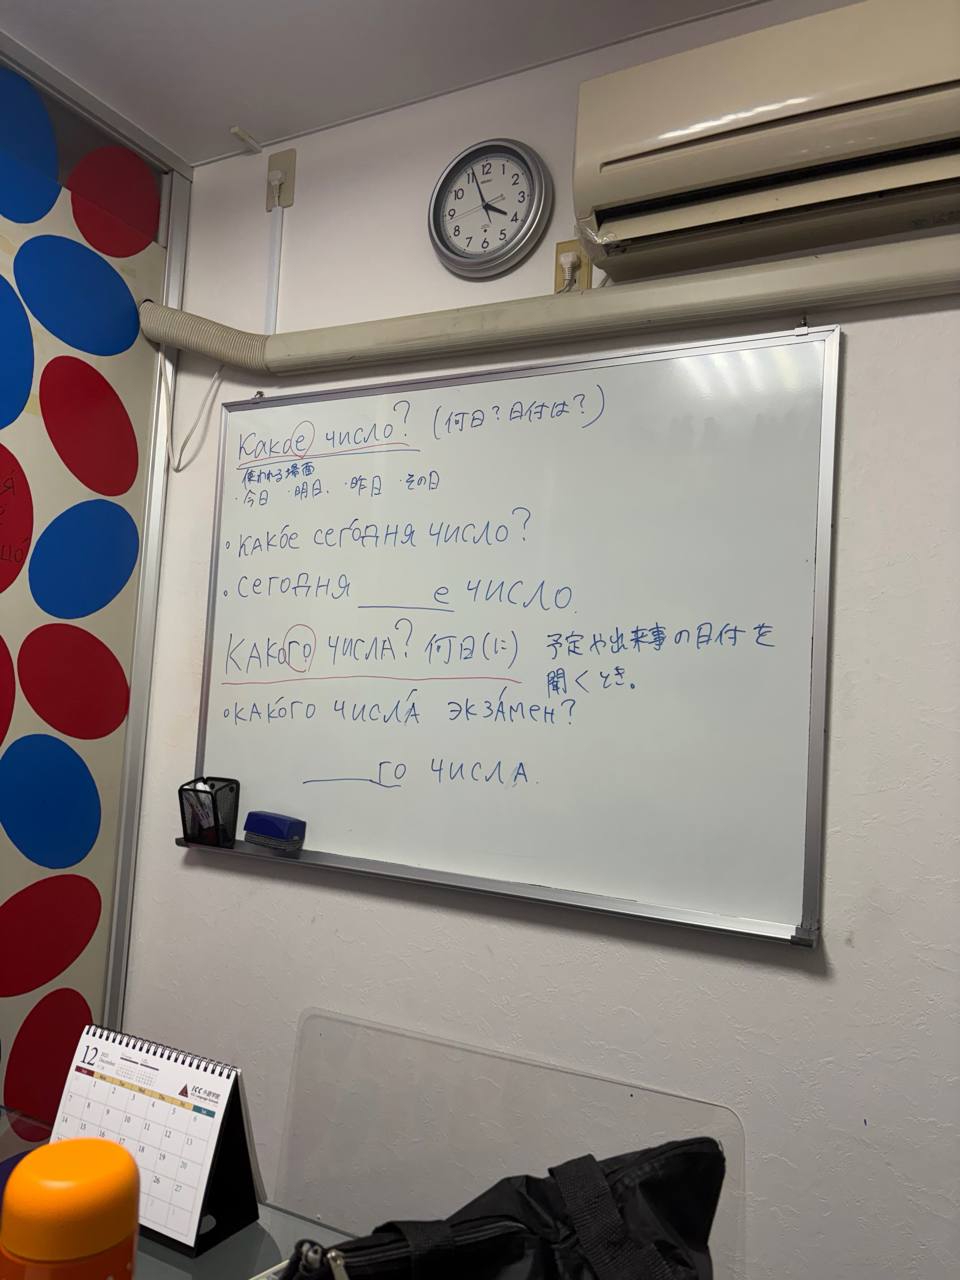 Какое число? (何日？日付は？)
使われる場面
・今日 ・明日. ・昨日 ・その日
• КАКО́Е СЕГО́ДНЯ ЧИСЛО?
• СЕГОДНЯ ______е ЧИСЛО.
КАКОГО ЧИСЛА? 何日(に) 予定や出来事の日付を
聞くとき。
• КАКО́ГО ЧИСЛА́ ЭКЗА́МЕН?
______ГО ЧИСЛА.
12
December
JCC